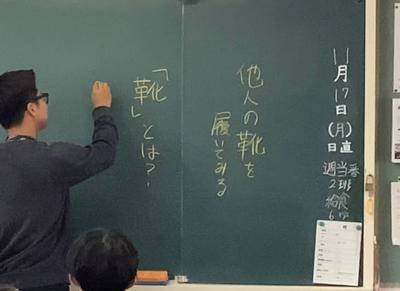 11月17日(月)
日直
週当番
2班
給食
他人の靴を
履いてみる
「靴」とは？